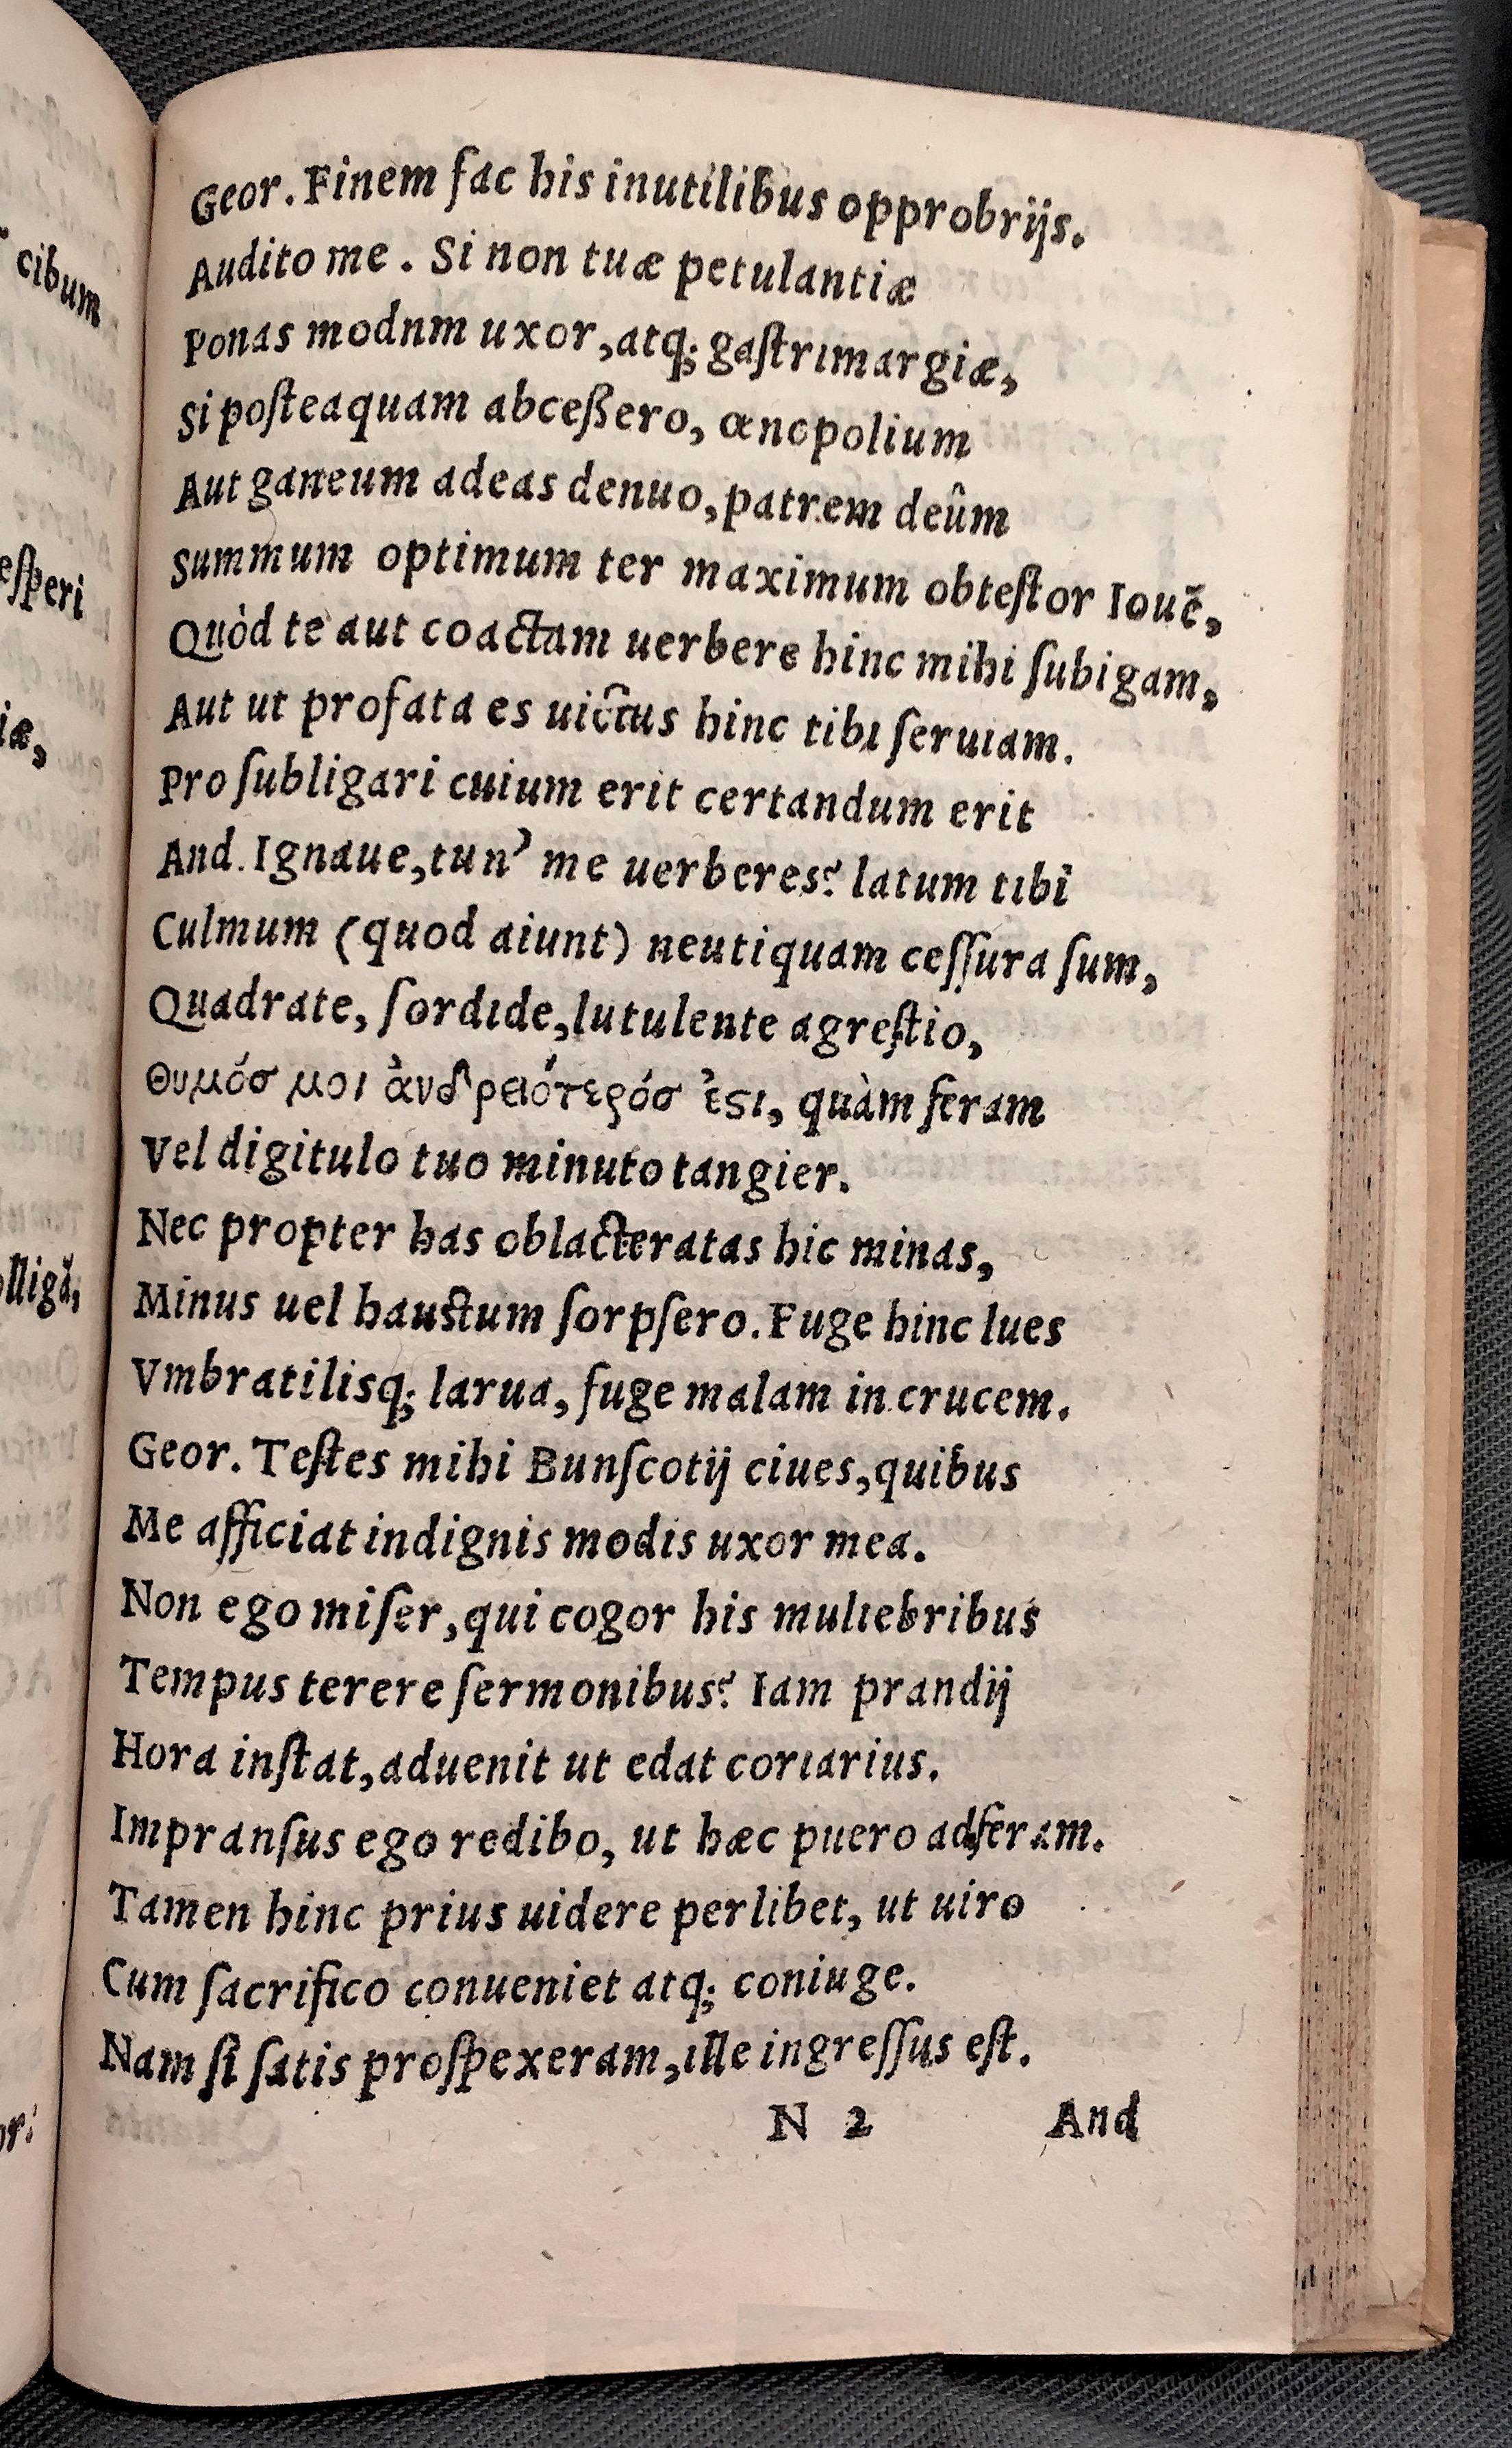 Geor. Finem fac his inutilibus opprobrijs.
Audito me. Si non tuæ petulantiæ
Ponas modnm uxor, atq; gaſtrimargiæ,
Si poſteaquam abceßero, œnopolium
Aut ganeum adeas denuo, patrem deûm
Summum optimum ter maximum obteſtor Iouē,
Quòd te aut coactam uerbere hinc mihi ſubigam,
Aut ut profata es uictus hinc tibi ſeruiam.
Pro ſubligari cuium erit certandum erit
And. Ignaue, tun' me uerberes? latum tibi
Culmum (quod aiunt) neutiquam ceſſura ſum,
Quadrate, ſordide, lutulente agreſtio,
Θυμόσ μοι ἀνδρειότερόσ ἐϛι, quàm feram
Vel digitulo tuo minuto tangier.
Nec propter has oblacteratas hic minas,
Minus uel hauſtum ſorpſero. Fuge hinc lues
Vmbratilisq; larua, fuge malam in crucem.
Geor. Teſtes mihi Bunſcotij ciues, quibus
Me afficiat indignis modis uxor mea.
Non ego miſer, qui cogor his muliebribus
Tempus terere ſermonibus? Iam prandij
Hora inſtat, aduenit ut edat coriarius.
Impranſus ego redibo, ut hæc puero adferam.
Tamen hinc prius uidere perlibet, ut uiro
Cum ſacrifico conueniet atq; coniuge.
Nam ſi ſatis proſpexeram, ille ingreſſus eſt.
N 2 And
cibum
eſperi
iæ,
lligā,